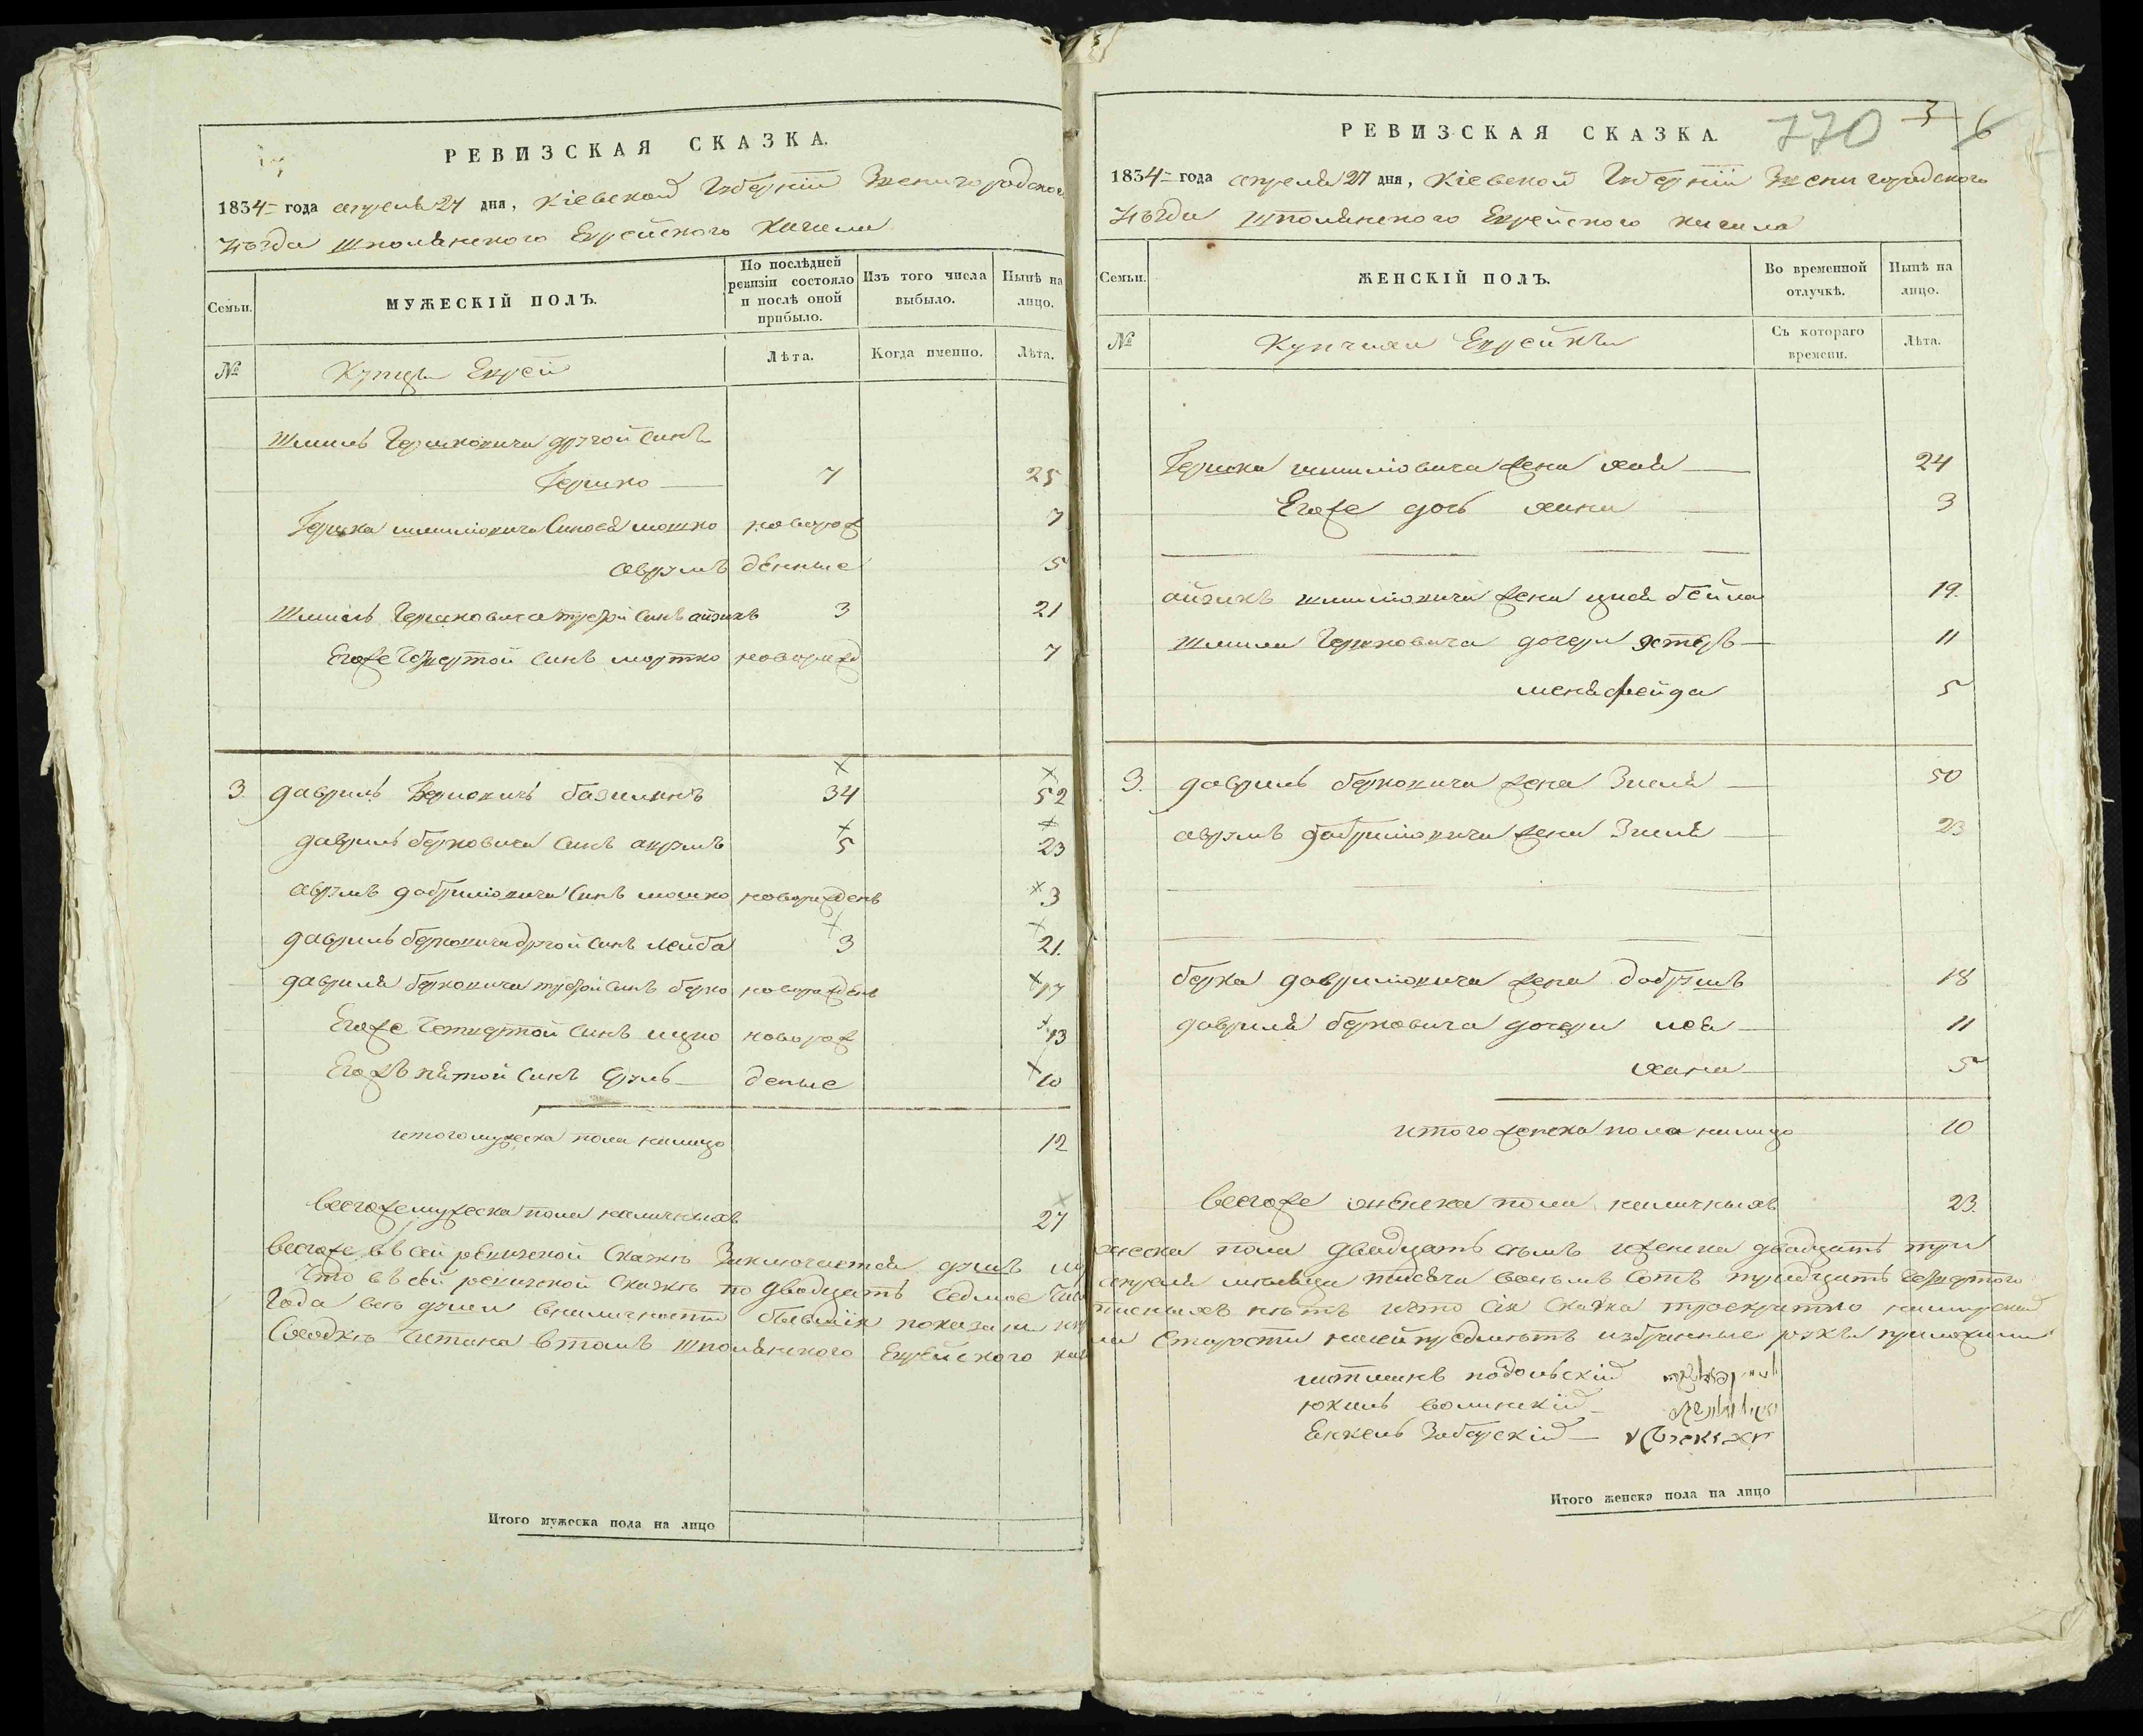 РЕВИЗСКАЯ СКАЗКА.
1834 года апреля 27 дня, Кіевской Губерніи Звенигородского
уѣзда Шполянского Еврейского Кагала
Семьи.
МУЖЕСКІЙ ПОЛЪ.
По послѣдней ревизіи состояло и послѣ оной прибыло.
Изъ того числа выбыло.
Нынѣ на лицо.
№
Купцы Евреи
Лѣта.
Когда именно.
Лѣта.
Шмиль Гершковича другой синъ
Гершко 7 25
Гершка шмиліовича Синовя мошко новорож 7
аврумъ денные 5
Шмиль Гершковича третій синъ айзикъ 3 21
Егоже Четвертой синъ мортко новорожд 7
3. гаврилъ Берковичъ базилинъ 34 52
гаврилъ берковича синъ аврумъ 5 23
аврумъ гавриліовича синъ мошко новорожденъ 3
гаврилъ берковича другой синъ Лейба 3 21.
гавриля берковича третій синъ берко новорожденъ 17
Егоже Четвертой синъ ицко новорож 13
Егожъ пятой синъ сруль деные 10
итого мужеска пола налицо 12
Всегоже мужеска пола наличныхъ 27
РЕВИЗСКАЯ СКАЗКА
770
3
6
1834 года апреля 27 дня, Кіевской Губерніи Звенигородского
уѣзда Шполянского Еврейского кагала
Семьи.
ЖЕНСКІЙ ПОЛЪ.
Во временной отлучкѣ.
Нынѣ на лицо.
№
Купчихи Еврейки
Съ котораго времени.
Лѣта.
Гершка шмиліовича жена хая 24
Егоже дочь хана 3
айзикъ шмиліовича жена цися бейла 19.
Шмиля Гершковича дочери эстеръ 11
меняфейга 5
3. гаврилъ берковича жена Зисля 50
аврумъ гавриліовича жена Зисля 23
берка гавриліовича жена добрышъ 18
гавриля берковича дочери лея 11
хана 5
итого женска пола налицо 10
Всегоже женска пола наличныхъ 23.
Всегоже въ сей ревизской Сказкѣ Заключается душъ мужеска пола двадцать семъ иженска двадцать три
Что въ сей ревизской Сказкѣ по двадцать Седмое апреля месяца тисяча восъмъ Сотъ тридцать четвертого
Года всѣ души вналичности бывшія показани и прописныхъ нѣтъ ичто
Шполянского Еврейского
избранные руки приложили
подольскій
юкиль волинскій
Енкель Заберскій
Итого мужеска пола на лицо
Итого женска пола на лицо